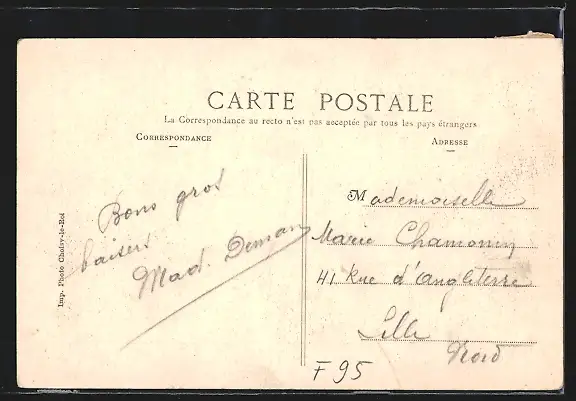 CARTE POSTALE
La Correspondance au recto n'est pas acceptée par tous les pays étrangers
CORRESPONDANCE
ADRESSE
Bons gros
baisers
Mad. Deman
Mademoiselle
Marie Chamonin
41 Rue d'angleterre
Lille
Nord
F 95
Imp. Photo Choisy-le-Roi